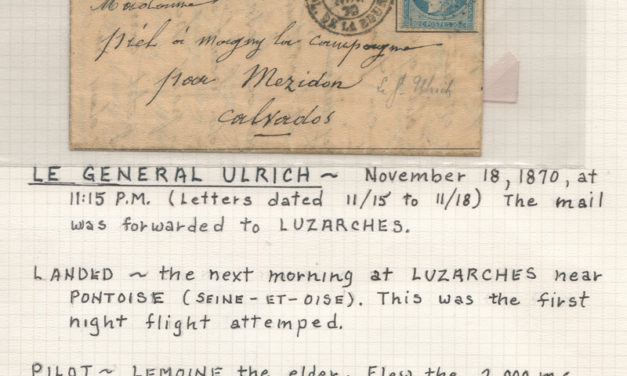 Madame
à magny la campagne
par Mezidon
calvados
POSTES
LE GENERAL ULRICH ~ November 18, 1870, at
11:15 P.M. (Letters dated 11/15 to 11/18) The mail
was forwarded to LUZARCHES.
LANDED ~ the next morning at LUZARCHES near
PONTOISE (SEINE-ET-OISE). This was the first
night flight attemped.
PILOT ~ LEMOINE the elder. Flew the 2,000 m